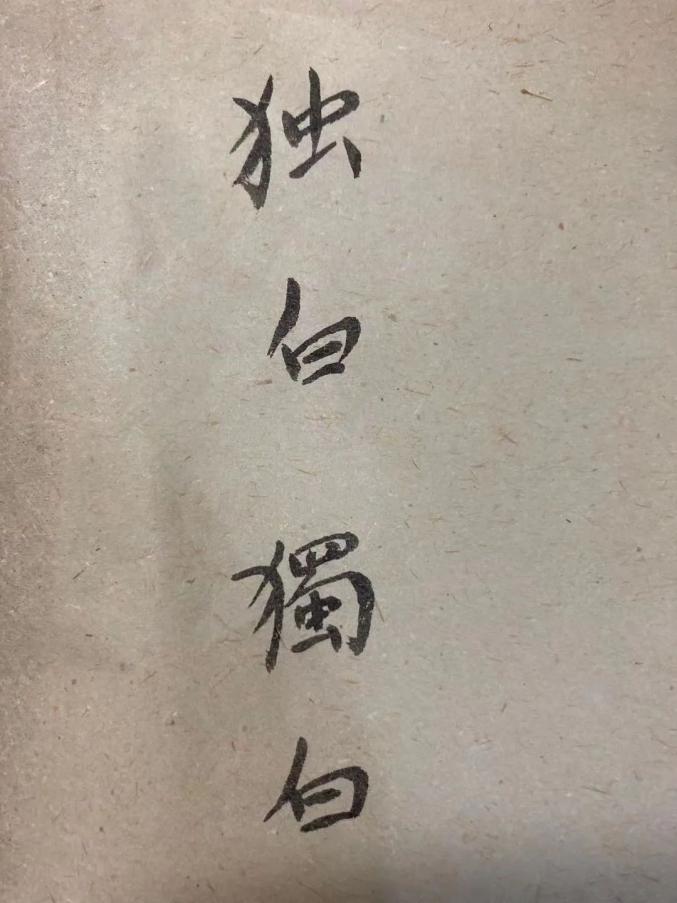 独白獨白